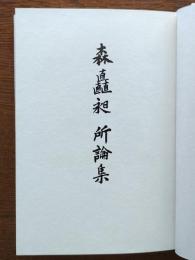 森矗昶 所論集